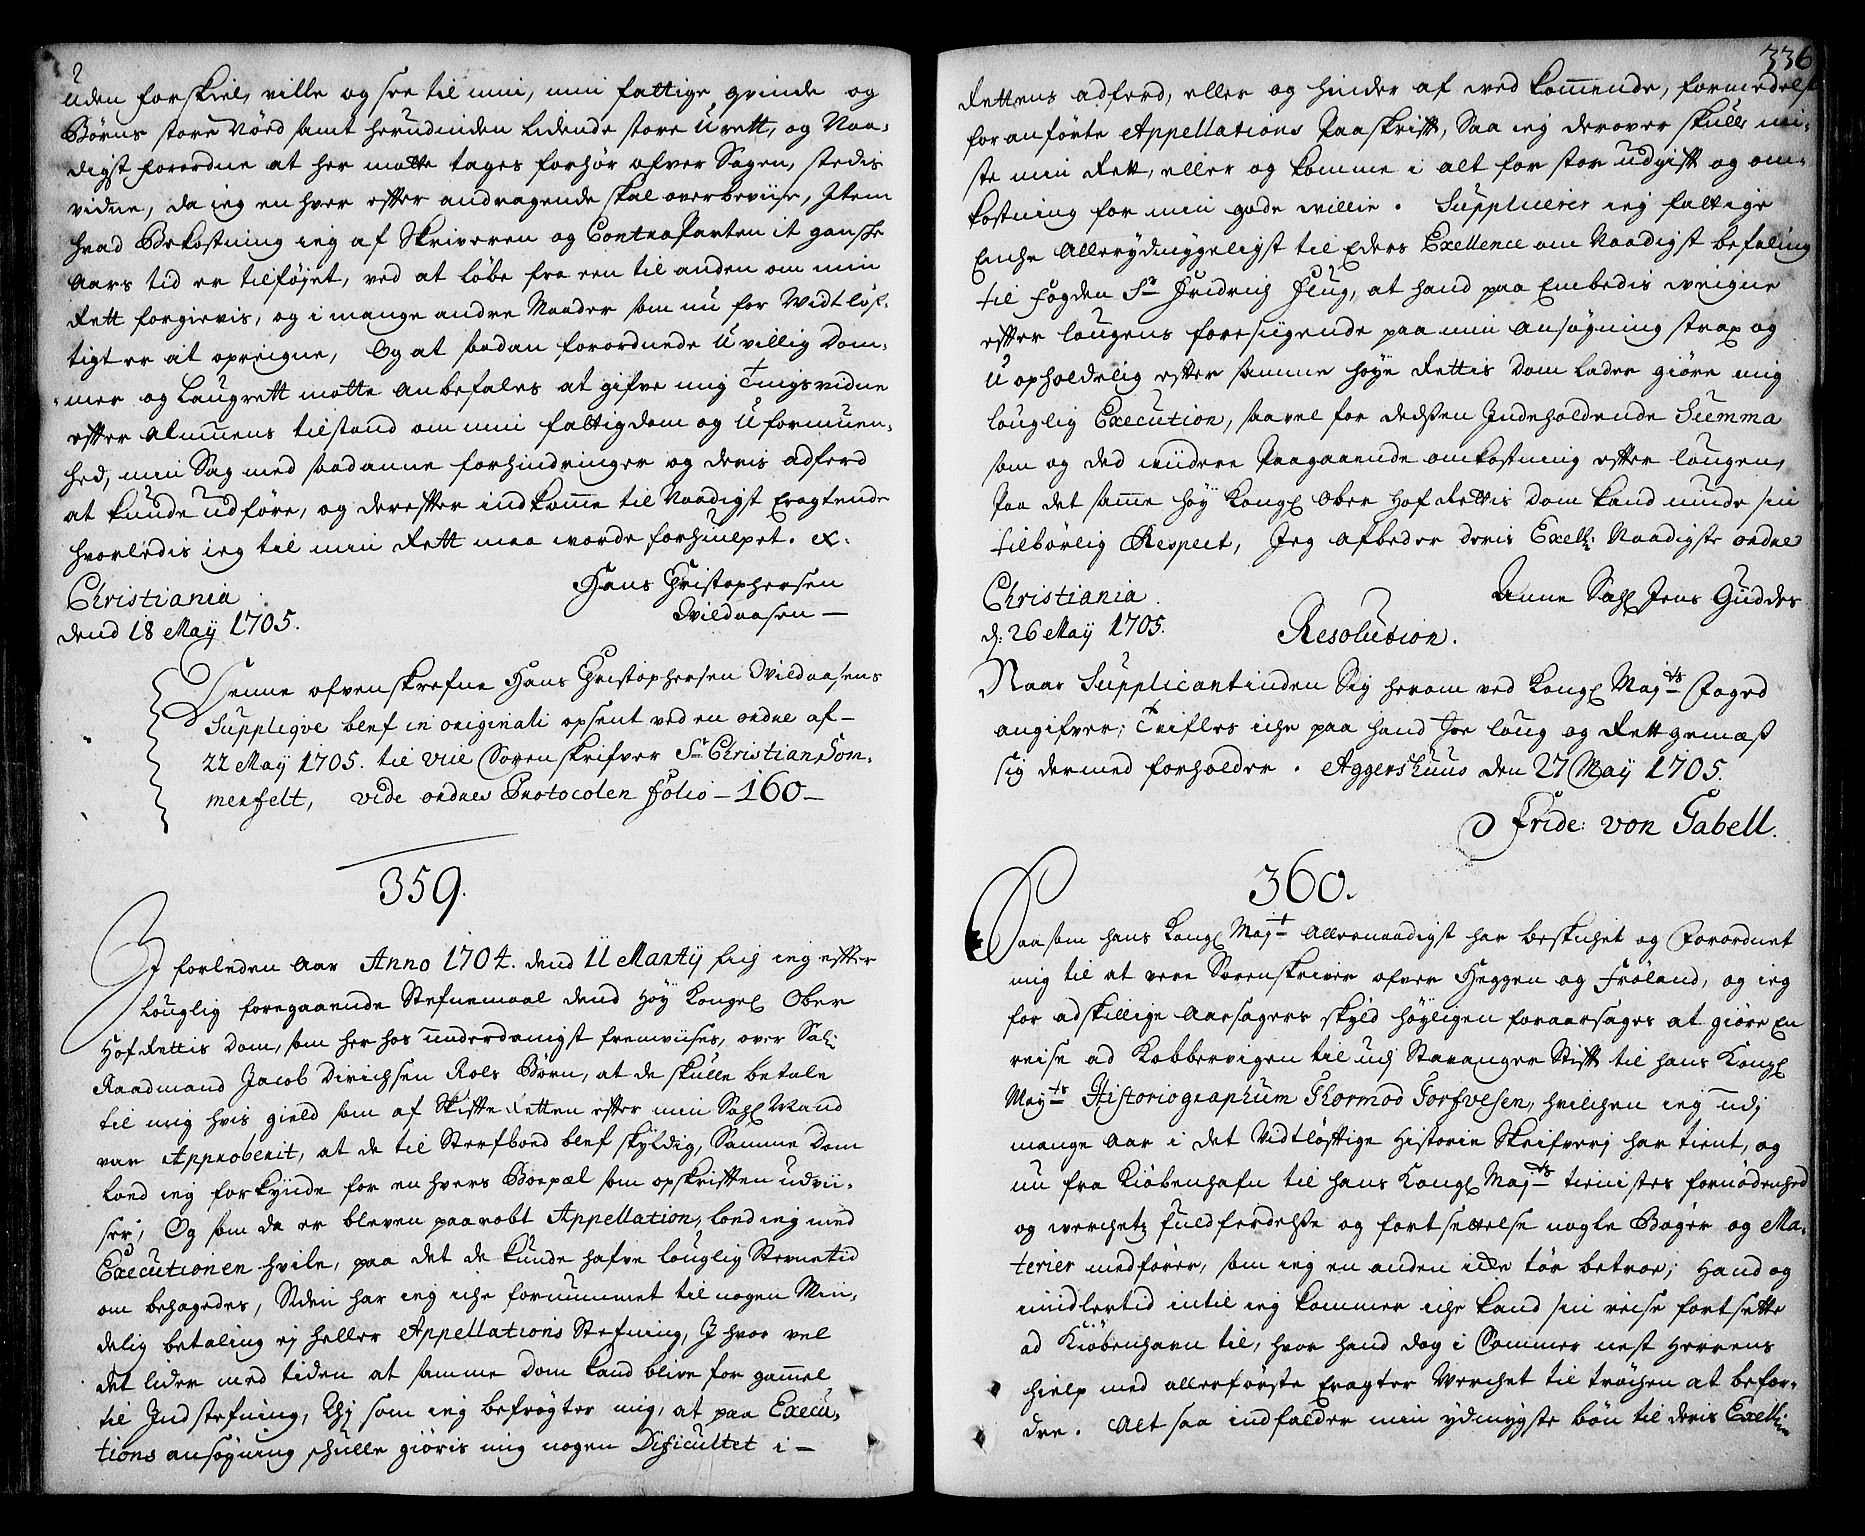 uden forskiel, ville og see til min, min fattige qvinde og
Børns store Nöed samt herudinden lidende store Urett, og Naa-
digst forordne at her motte tages forhör ofver Sagen, stedis
vidne, da ieg en hver efter andragende skal overbeviise, Item
hvad Bekostning ieg af Skriveren og Contraparten it gansche
Aars tid er tilföyet, ved at löbe fra een til anden om min
Rett forgievis, og i mange andre Maader som nu for Widtlöf-
tigt er at opreigne, Og at saadan forordnede Uvillig Dom-
mer og Laugrett motte anbefales at gifve mig Tingsvidne
efter almuens tilstand om min fattigdom og Uformuen-
hed, min Sag med saadanne forhindringer og deris adferd
at kunde udföre, og derefter indkomme til Naadigst Eragtende
hvorledis ieg til min Rett maa worde forhiulpet. ex.
Christiania
Hans Christophersen
Dend 18 Maÿ 1705.
Qvildaasen —
Denne ofvenskrefne Hans Christophersen Qvildaasens
Suppliqve blef in originali opsent ved en ordre af —
22 Maÿ 1705. til Vice Sorenskrifver Sr Christian Som-
merfelt, vide ordres Protocolen Folio — 160 —
359.
I forleden Aar Anno 1704. dend 11 Martÿ fich ieg efter
Louglig foregaaende Stefnemaal dend Höÿ Kongel Ober
Hof Rettis Dom, som her hos underdanigst fremviises, over Sal:
Raadmand Jacob Dirichsen Roels Börn, at de skulle betale
til mig hvis gield som af Skifte Retten efter min Sahl Mand
var Approberit, at de til Sterfboed blef skÿldig, Samme Dom
loed ieg forkÿnde for en hvers Boepæl som opskriften udvii-
ser, Og som da er bleven paarobt Appellation, loed ieg med
Executionen hvile, paa det de kunde hafve louglig Stevnetid
om behagedes, Siden har ieg iche fornummet til nogen Min-
delig betaling ej heller Appellations Stefning, I hvor vel
det lider med tiden at samme Dom kand blive for gammel
til Indstefning, Thj som ieg befrögter mig, at paa Execu-
tions ansögning schulle giöris mig nogen Dificultet i —
336
Rettens adferd, eller og hinder af ved kommende, formedelst
for anförte Appellations Paaskrift, Saa ieg derover skulle mi-
ste min Rett, eller og komme i alt for stor udgift og om-
kostning for min gode willie. Supplicerer ieg fattige
Enche Allerÿdmygeligst til Eders Exellence om Naadigst befaling
til Fogden Sr Fridrich Plug, at hand paa Embedis weigne
efter lougens foresiigende paa min Ansögning strax og
Uopholdelig efter samme höÿe Rettis Dom lader giöre mig
louglig Execution, saavel for dedsen Indeholdende Summa
som og ded widere Paagaaende omkostning efter lougen,
Paa det samme höÿ Kongl Ober Hof Rettis Dom kand niude sin
tilbörlig Respect, Jeg afbeder deris Exell: Naadigste ordre
Christiania
Anne Sahl Jens Guddes
d: 26 Maÿ 1705.
Resolution.
Naar Supplicantinden Sig herom ved Kongl Maj:ts Foged
angifver, Tvifles iche paa hand Joe loug og Rett gemæs
sig dermed forholder. Aggershuus den 27 Maÿ 1705.
Fride: von Gabell.
360.
Saasom hans Kongl Maj:t Allernaadigst har beskichet og Forordnet
mig til at vere Sorenskriver ofver Heggen og Fröland, og ieg
for adskillige Aarsagers skÿld höÿligen foraarsages at giöre En
reise ad Kobbervigen til udj Stavanger Stift til hans Kongl
Maÿ:ts Historiographum Thormod Torfvesen, hvilchen ieg udj
mange Aar i det Vidtlöftige Historie Skrifverj har tient, og
nu fra Kiöbenhafn til hans Kongl Maj:ts tienistes fornödenhed
og werchetz fuldferdelse og fortsettelse nogle Böger og Ma-
terier medförer, som ieg en anden icke tör betroe; Hand og
imidlertid intil ieg kommer iche kand sin reise fortsette
ad Kiöbenhavn til, hvor hand dog i Sommer nest Herrens
hielp med allerförste Eragter Werchet til tröchen at befor-
dre. Alt saa indfalder min ÿdmÿgste bön til deris Exell: